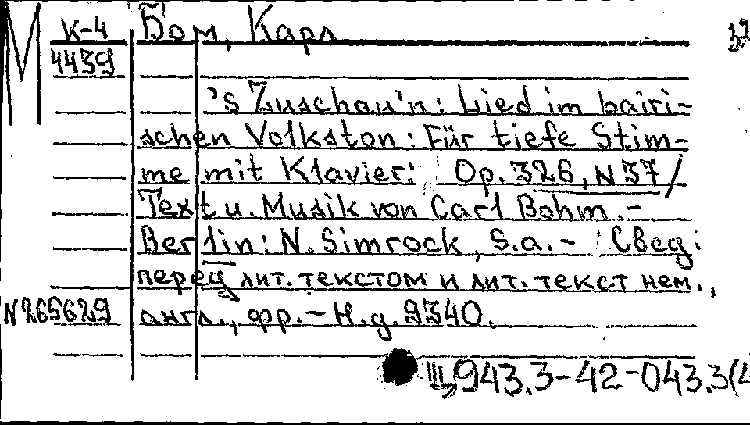 М К-4 Бом, Карл
4439
's Zuschau'n: Lied im bairi-
schen Volkston: Für tiefe Stim-
me mit Klavier: Op. 326, N 37/
Text u. Musik von Carl Bohm.-
Berlin: N. Simrock, S.a.- Свед.
перед лит. текстом и лит. текст нем.,
N265629 англ., фр.- Н.д. 9340.
Щ943.3-42-043.3(4